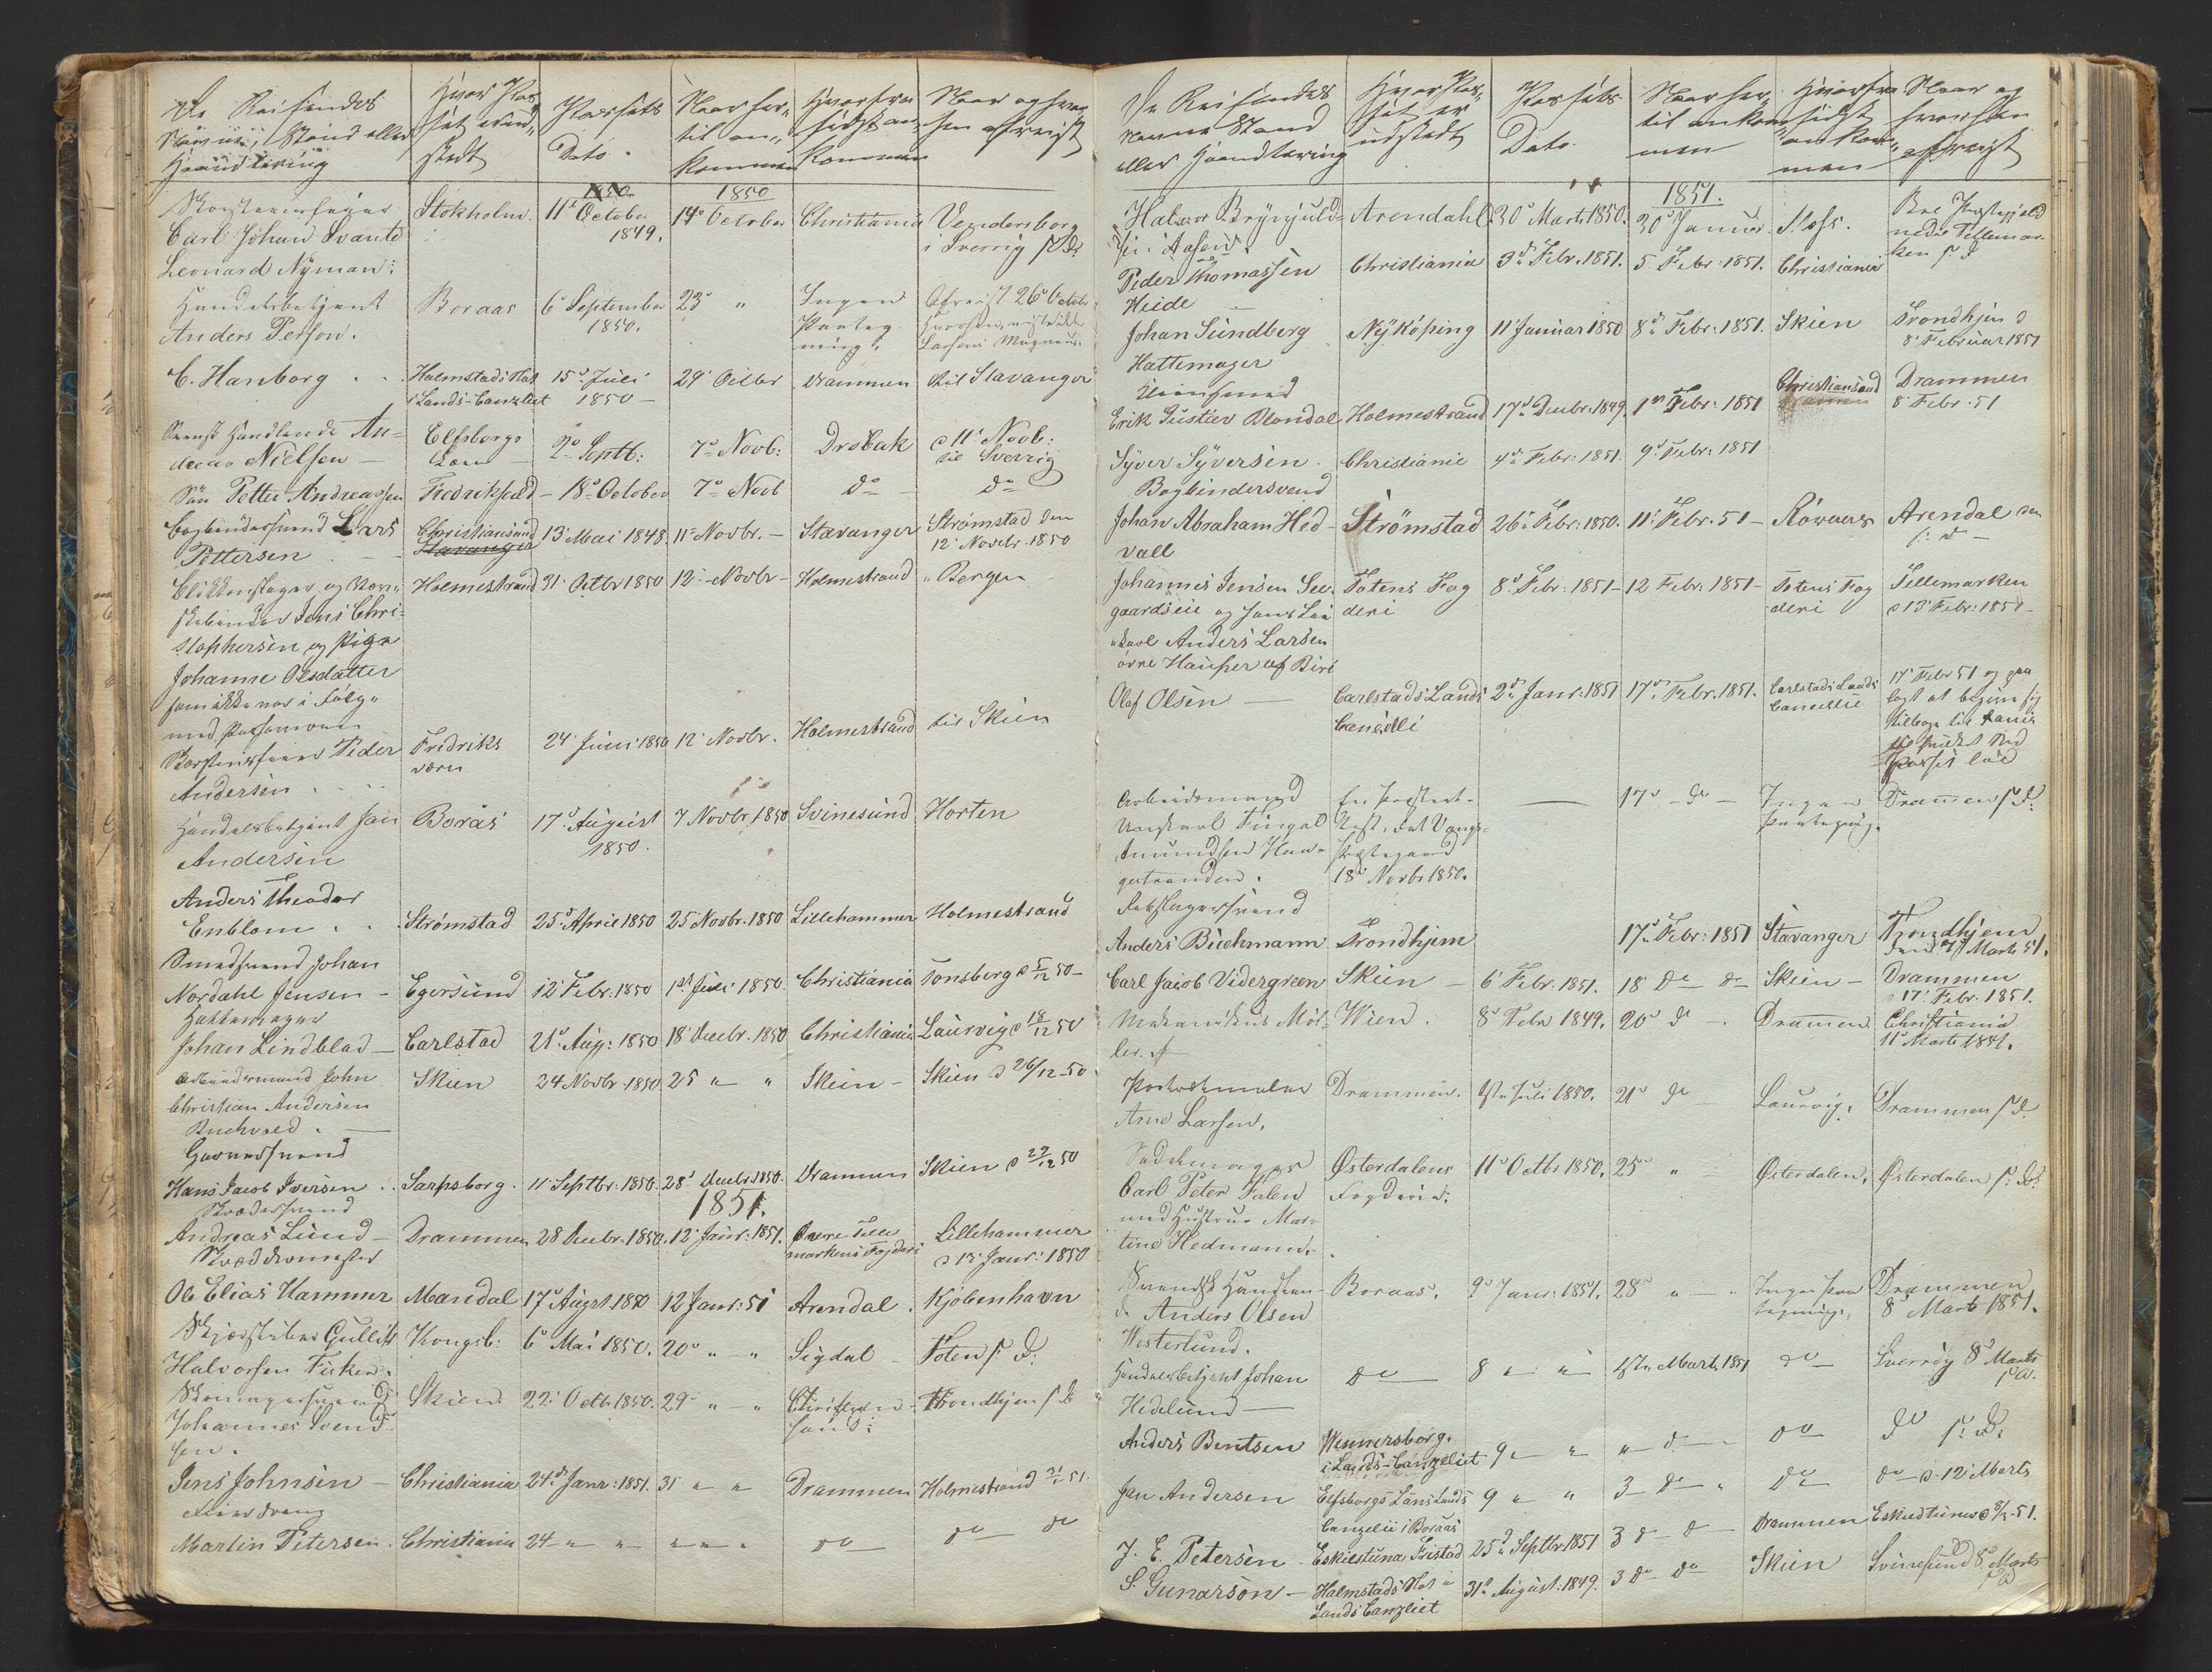 De Reisendes
Navne, Stand eller
Haandtering
Hvor Pas„
set uds„
stedt
Passets
Dato.
Naar her„
til an„
kommen
Hvorfra
sidst an„
kommen
Naar og hvor„
hen afreist
1850
Skorsteensfeier
Carl Johan Svante
Leonard Nyman:
Stokholm.
11te October
1849.
14de October
Christiania
Venersborg
i Sverrig s. D.
Handelsbetjent
Anders Person.
Boraas
6 September
1850.
23de „
Ingen
Paateg
ning.
Afreist 26de Octobr
C. Hanborg
Halmstads Slot
i Lands-Canzliet
15de Juli
1850 –
29de Octbr
Drammen
til Stavanger
Svensk Handlende An=
dreas Nielsen –
Elfsborgs
Laen
2de Septb:
7de Novb:
Drøbak
d 11te Novb:
til Sverrig
Søn Petter Andreassen
Fredrikshald
– 18de October
7de Novb
do
do
Bogbindersvend Lars
Pettersen
Christiansund
Stavanger
13de Mai 1848.
11te Novbr. –
Stavanger
Strømstad den
12te Novbr. 1850
Blikkenslager og
Jens Chri=
stophersen og Pige
Johanne Olsdatter
som ikke var i Følge
med
Holmestrand
31te Octbr 1850
12te Novbr –
Holmestrand
„ Bergen
Skorsteensfeier Peder
Andersen
Fridriks
værn
24de Juni 1850
12te Novbr.
Holmestrand
til Skien
Handelsbetjent Jan
Andersen
Borås
17de August
1850.
7 Novbr. 1850
Svinesund
Horten
Anders Theodor
Enblom
Strømstad
25de April 1850
25 Novbr. 1850
Lillehammer
Holmestrand
Smedsvend Johan
Nordahl Jensen –
Egersund
12te Febr: 1850
1ste Juli 1850
Christiania
Tønsberg d 5/12 50 –
Hattemager
Johan Lindblad –
Carlstad
21de Aug: 1850
18de Decbr. 1850
Christiania
Laurvig d 18/12 50
Arbeidsmand John
Christian Andersen
Buchvold
Skien
24 Novbr. 1850
25 „ „
Skien –
Skien d 26/12 – 50
Garversvend
Hans Jacob Iversen
Sarpsborg.
11te Septbr: 1850.
28de Decbr. 1850.
Drammen
Skien d 29/12 50
1851.
Skrædersvend
Andreas Lund –
Drammen
28 Decbr. 1850.
12te Janr: 1851.
Øvre Telle
markens Fogderi
Lillehammer
d 13de Janr: 1850
Skræddermester
Ole Elias Hammer
Mandal
17de Augst. 1850
12 Janr: 51
Arendal.
Kjøbenhavn
Gullik
Halvorsen
Kongsb:
6te Mai 1850.
20de „ „
Sigdal –
Toten s. D.
Skomagersvend
Johannes Svend=
sen.
Skien
22de Octb. 1850.
29de „ „
Christian=
sand:
Trondhjem s. D
Jens Johnsen –
Christiania
24de Janr: 1851.
31 „ „
Drammen
Holmestrand 31/1 51.
Martin Petersen.
Christiania
24 – „ „
„ „ „
do
do do
De Reisendes
Navne Stand
eller Haandtering
Hvor Pas„
set er
udstædt
Passets
Dato.
Naar her„
til ankom
men
Hvorfra
sidst
ankom„
men
Naar og
hvorhen
afreist
1851.
Halvor Brynjuld=
sen Aasen.
Arendahl
30te Marts 1850.
30te Januar
Slofs.
nedre Tellemar
ken s. D
Peder Thomassen
Heide
Christiania
3de Febr. 1851.
5 Febr. 1851.
Christiania
Johan Sundberg
Hattemager
Nyköping
11te Januar 1850
8de Febr: 1851.
Skien
Trondhjem d
8de Februar 1851
Erik Gustav Blondal
Holmestrand
17de Decbr. 1849.
1ste Febr: 1851
Christiansand
Drammen
8 Febr. 51
Syver Syversen.
Bogbindersvend
Christiania
4de Febr: 1851.
9de Febr: 1851
Johan Abraham Hed=
vall
Strömstad
26de Febr: 1850.
11te Febr. 51 –
Röraas
Arendal
s: D –
Johannes Jensen See
gaardseie og
Anders Larsen
øvre af Biri
Totens Fog
deri
8de Febr: 1851 –
12 Febr: 1851 –
Totens Fog
deri
Tellemarken
d 13de Febr: 1851 –
Olaf Olsen –
Carlstads Lands
Cancelli
2de Janr. 1851
17de Febr. 1851.
Carlstads Lands
Cancellie
17de Febr 51 og paa
lagt at begive sig
tilbage til
Passet lød
Arbeidsmand
Amundsen Hau=
gstranden.
Attest fra Vangs
Præstegaard
18de Novbr 1850.
–
17de – do –
Ingen
Paategng.
Drammen s. D.
Rebslagersvend
Anders Buchmann
Trondhjem
17de Febr: 1851
Stavanger
Trondhjem
den 7de Marts 51.
Carl Jacob Vidergreen
Skien –
6te Febr. 1851.
18 do do
Skien –
Drammen
d 17de Febr. 1851.
Mekanikus Møl=
ler.
Wien.
8de Febr 1849.
20de do
Drammen
Christiania
11te Marts 1851.
Portrætmaler
Arne Larsen.
Drammen.
1ste Juli 1850.
21de do –
Laurvig.
Drammen s. D.
Sadelmager
Carl Peter Falen
med Hustrue Mar=
tine Hedmann.
Østerdalens
Fogderie.
11te Octbr 1850.
25de „
Østerdalen.
Østerdalen s. D.
Svensk Handlen
de Anders Olsen
Westerlund.
Boraas.
9de Janr. 1851.
28de „
Ingen Paa
tegning.
Drammen
8de Marts 1851.
Handelsbetjent Johan
Hedelund –
do
8 „ „
1ste Marts 1851
do –
Sverrig 8de Marts
s. D.
Anders Bentsen
Wennersborg.
i Lands-Canzeliet
9 – „
„ d –
do
do s. D.
Jan Andersen
Elfsborgs Läns Lands
Canzelii i Borås
9 „ „
3 – do „
do
do – d. 12te Marts
J. E. Petersen
Eskilstuna Fristad
25de Septbr. 1851
3 d – d –
Drammen
Eskildtuna d 8/3 – 51.
S. Gunarson –
Halmstads Slot i
Lands Canzliet
31te August. 1849.
3 do do
Skien
Svinesund 8de Marts
s D